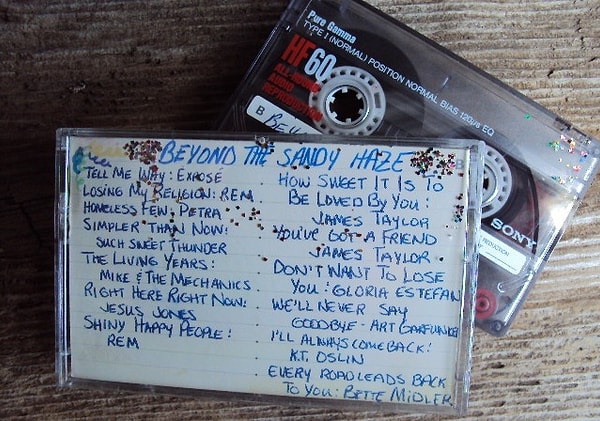 Pure Gamma
TYPE I (NORMAL) POSITION NORMAL BIAS 120µs EQ
HF60
ALL-ROUND
AUDIO
REPRODUCTION
B
SONY
REPRODUCTION
BEYOND THE SANDY HAZE
TELL ME WHY: EXPOSÉ
LOSING MY RELIGION: REM
HOMELESS FEW: PETRA
SIMPLER THAN NOW:
SUCH SWEET THUNDER
THE LIVING YEARS:
MIKE & THE MECHANICS
RIGHT HERE RIGHT NOW:
JESUS JONES
SHINY HAPPY PEOPLE:
REM
HOW SWEET IT IS TO
BE LOVED BY YOU:
JAMES TAYLOR
YOU'VE GOT A FRIEND
JAMES TAYLOR
DON'T WANT TO LOSE
YOU: GLORIA ESTEFAN
WE'LL NEVER SAY
GOODBYE - ART GARFUNKEL
I'LL ALWAYS COME BACK:
K.T. OSLIN
EVERY ROAD LEADS BACK
TO YOU: BETTE MIDLER